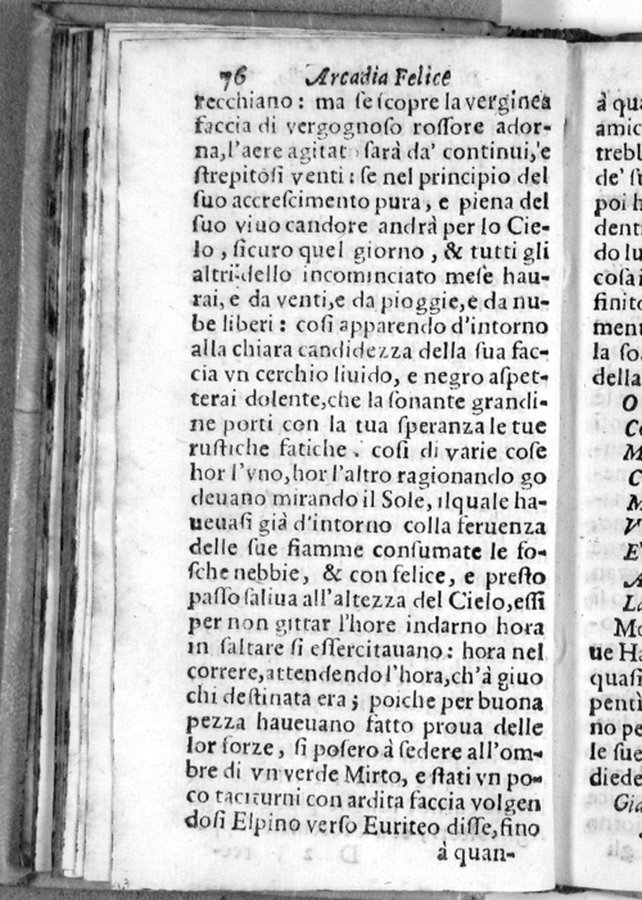 76 Arcadia Felice
recchiano: ma ſe ſcopre la verginea
faccia di vergognoſo roſſore ador-
na,l'aere agitato ſarà da' continui,'e
ſtrepitoſi venti: ſe nel principio del
ſuo accreſcimento pura, e piena del
ſuo viuo candore andrà per lo Cie-
lo, ſicuro quel giorno, & tutti gli
altri dello incominciato meſe hau-
rai, e da venti,e da pioggie,e da nu-
be liberi: coſi apparendo d'intorno
alla chiara candidezza della ſua fac-
cia vn cerchio liuido, e negro aſpet-
terai dolente,che la ſonante grandi-
ne porti con la tua ſperanza le tue
ruſtiche fatiche. coſi di varie coſe
hor l'vno,hor l'altro ragionando go
deuano mirando il Sole, ilquale ha-
ueuaſi già d'intorno colla feruenza
delle ſue fiamme conſumate le fo-
ſche nebbie, & con felice, e preſto
paſſo ſaliua all'altezza del Cielo,eſſi
per non gittar l'hore indarno hora
in ſaltare ſi eſſercitauano: hora nel
correre,attendendo l'hora,ch'à giuo
chi deſtinata era; poiche per buona
pezza haueuano fatto proua delle
lor forze, ſi poſero à ſedere all'om-
bre di vn verde Mirto, e ſtati vn po-
co taciturni con ardita faccia volgen
doſi Elpino verſo Euriteo diſſe,fino
à quan-
à qua
amic
trebl
de' ſ
poi h
dent
do lu
coſa i
finito
ment
la ſo
della
O
C
M
C
M
V
E
A
La
Mo
ue Ha
quaſi
pentì
no pe
le ſue
diede
Gia